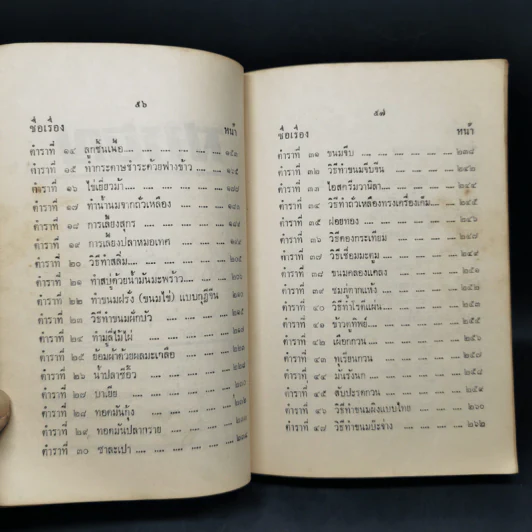 ๕๖
ชื่อเรื่อง หน้า
ตำราที่ ๑๔ ลูกชิ้นเนื้อ.... .... .... .... ....
ตำราที่ ๑๕ ทำกระดาษชำระด้วยฟางข้าว.... ๑๖๕
ตำราที่ ๑๖ ไข่เยี่ยวม้า.... .... .... ....
ตำราที่ ๑๗ ทำน้ำนมจากถั่วเหลือง .... ....
ตำราที่ ๑๘ การเลี้ยงสุกร .... .... .... ....
ตำราที่ ๑๙ การเลี้ยงปลาหมอเทศ .... ....
ตำราที่ ๒๐ วิธีทำส้ม .... .... .... ....
ตำราที่ ๒๑ ทำสบู่ด้วยน้ำมันมะพร้าว.... ....
ตำราที่ ๒๒ ทำขนมฝรั่ง (ขนมไข่) แบบกุฎีจีน ๒๑๐
ตำราที่ ๒๓ วิธีทำขนมฝักบัว .... .... ....
ตำราที่ ๒๔ ทำมู่ลี่ไม้ไผ่ .... .... ....
ตำราที่ ๒๕ ย้อมผ้าด้วยผลมะเกลือ .... ....
ตำราที่ ๒๖ น้ำปลาซีอิ๊ว .... .... ....
ตำราที่ ๒๗ บาเยีย .... .... .... ....
ตำราที่ ๒๘ ทอดมันกุ้ง .... .... .... ....
ตำราที่ ๒๙ ทอดมันปลากราย .... .... ....
ตำราที่ ๓๐ ซาละเปา .... .... .... ....
๕๗
ชื่อเรื่อง หน้า
ตำราที่ ๓๑ ขนมจีบ .... .... .... .... ๒๓๘
ตำราที่ ๓๒ วิธีทำขนมจีบจีน .... .... .... ๒๔๒
ตำราที่ ๓๓ ไอสครีมวานิลา .... .... .... ๒๔๔
ตำราที่ ๓๔ วิธีทำถั่วเหลืองทรงเครื่องเค็ม.... ๒๔๕
ตำราที่ ๓๕ ฝอยทอง .... .... .... .... ๒๔๖
ตำราที่ ๓๖ วิธีดองกระเทียม .... .... .... ๒๔๗
ตำราที่ ๓๗ วิธีเชื่อมมะตูม .... .... .... ๒๔๙
ตำราที่ ๓๘ ขนมดอลงแดลง .... .... .... ๒๕๑
ตำราที่ ๓๙ ชมภู่ตากแห้ง .... .... .... ๒๕๒
ตำราที่ ๔๐ วิธีทำโรตีแผ่น .... .... .... ๒๕๓
ตำราที่ ๔๑ ข้าวคูทิพย์ .... .... .... ๒๕๕
ตำราที่ ๔๒ เผือกกวน .... .... .... ๒๕๖
ตำราที่ ๔๓ ทุเรียนกวน .... .... .... ๒๕๗
ตำราที่ ๔๔ มันรังนก .... .... .... ๒๕๘
ตำราที่ ๔๕ สับปะรดกวน .... .... .... ๒๕๙
ตำราที่ ๔๖ วิธีทำขนมผิงแบบไทย .... .... ๒๖๐
ตำราที่ ๔๗ วิธีทำขนมบ๊ะจ่าง .... .... ๒๖๒